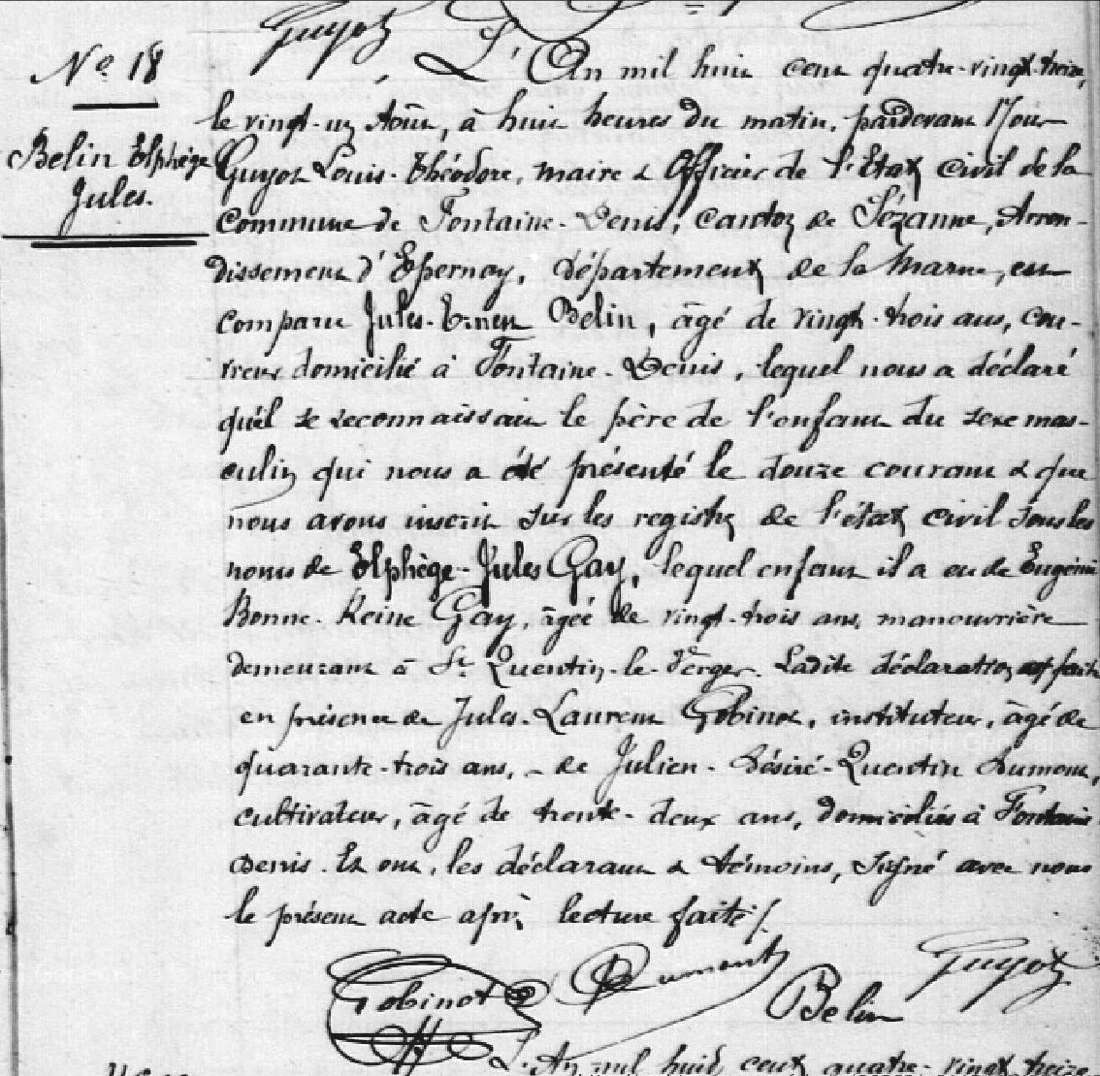 Guyot
Nº 18
Belin Elphège
Jules.
L'An mil huit cent quatre-vingt-treize,
le vingt-un Août, à huit heures du matin, pardevant Nous
Guyot Louis-Théodore, maire & Officier de l'Etat civil de la
commune de Fontaine-Denis, canton de Sézanne, Arron-
dissement d'Epernay, département de la Marne, est
comparu Jules-Ernest Belin, âgé de vingt-trois ans, cou-
vreur domicilié à Fontaine-Denis, lequel nous a déclaré
qu'il se reconnaissait le père de l'enfant du sexe mas-
culin qui nous a été présenté le douze courant & que
nous avons inscrit sur les registres de l'état civil sous les
noms de Elphège-Jules Gay, lequel enfant il a eu de Eugénie
Bonne-Reine Gay, âgée de vingt-trois ans, manouvrière
demeurant à St Quentin-le-Verger. Ladite déclaration est faite
en présence de Jules-Laurent Gobinot, instituteur, âgé de
quarante-trois ans, - de Julien-Désiré-Quentin Dumont,
cultivateur, âgé de trente-deux ans, domiciliés à Fontaine
Denis. Et ont, les déclarant & témoins, signé avec nous
le présent acte après lecture faite./.
Gobinot Dumont Belin Guyot
L'An mil huit cent quatre-vingt treize